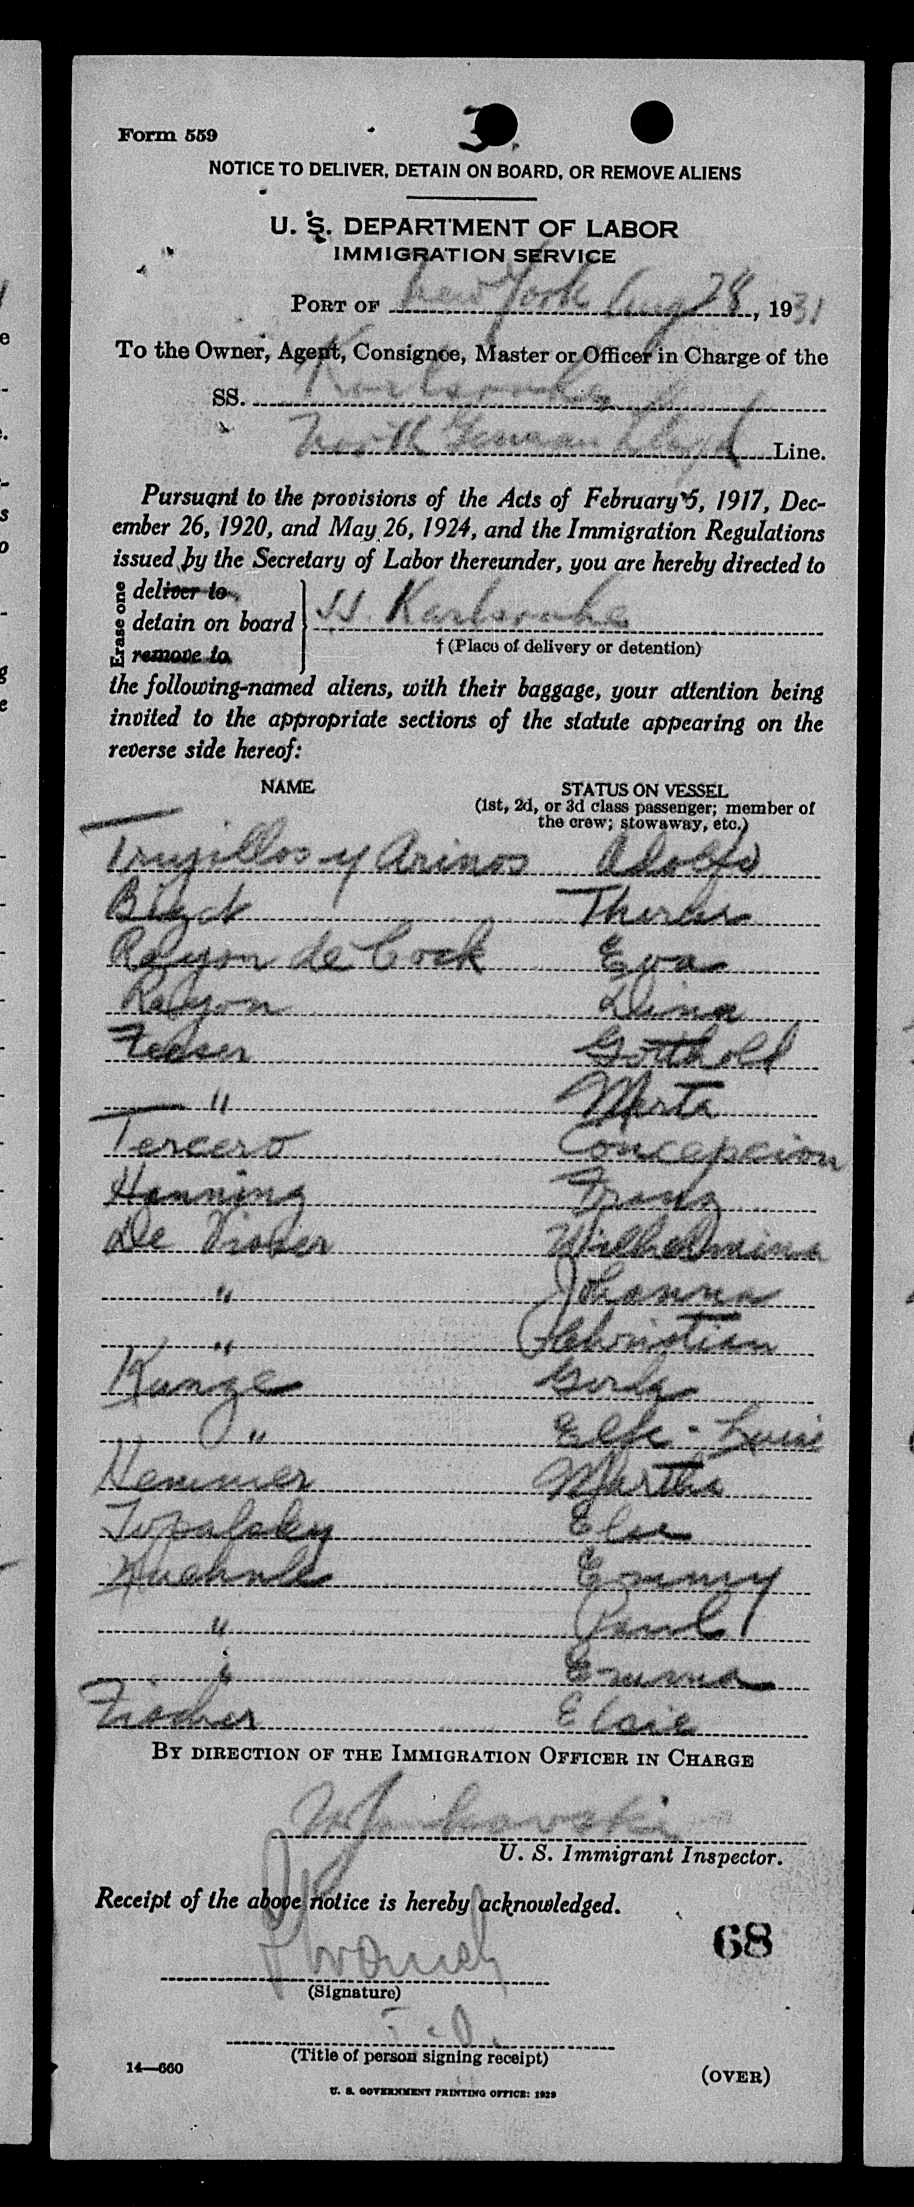 3
Form 559
NOTICE TO DELIVER, DETAIN ON BOARD, OR REMOVE ALIENS
U. S. DEPARTMENT OF LABOR
IMMIGRATION SERVICE
PORT OF New York Aug 28, 1931
To the Owner, Agent, Consignee, Master or Officer in Charge of the
SS. Karlsruhe
North German Lloyd Line.
Pursuant to the provisions of the Acts of February 5, 1917, Dec-
ember 26, 1920, and May 26, 1924, and the Immigration Regulations
issued by the Secretary of Labor thereunder, you are hereby directed to
Erase one
deliver to
detain on board SS. Karlsruhe
remove to
† (Place of delivery or detention)
the following-named aliens, with their baggage, your attention being
invited to the appropriate sections of the statute appearing on the
reverse side hereof:
NAME STATUS ON VESSEL
(1st, 2d, or 3d class passenger; member of
the crew; stowaway, etc.)
Trujillos y Arinos Adolfo
de Cock Eva
Dina
Gotthold
" Marta
Tercero Concepcion
Hanning Franz
De Visser Wilhelmina
" Johanna
" Christian
Kunze Gerda
"
Hemmer Martha
Topalsky Else
Kuehnle Emmy
" Paul
" Emma
Fischer Elsie
BY DIRECTION OF THE IMMIGRATION OFFICER IN CHARGE
U. S. Immigrant Inspector.
Receipt of the above notice is hereby acknowledged.
68
(Signature)
(Title of person signing receipt)
14—660
(OVER)
U. S. GOVERNMENT PRINTING OFFICE: 1929